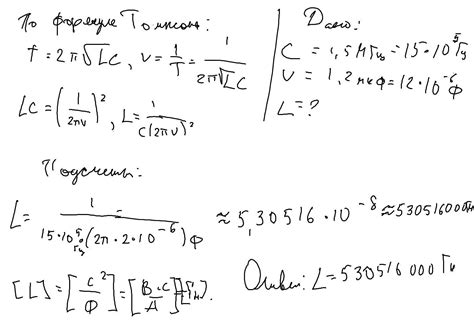 По формуле Томсона:
T = 2π√LC, ν = 1/T = 1/2π√LC
LC = (1/2πν)², L = 1/C(2πν)²
Дано:
C = 1,5 МГц = 15·10⁵ Гц
ν = 1,2 мкФ = 12·10⁻⁶ Ф
L = ?
Подсчеты:
L = 1/15·10⁵ Гц (2π·2·10⁻⁶) Ф = ≈ 5,30516·10⁻⁸ ≈ 530516000 Гн
[L] = [с²/Ф] = [В·с/А] [Гн].
Ответ: L = 530516000 Гн